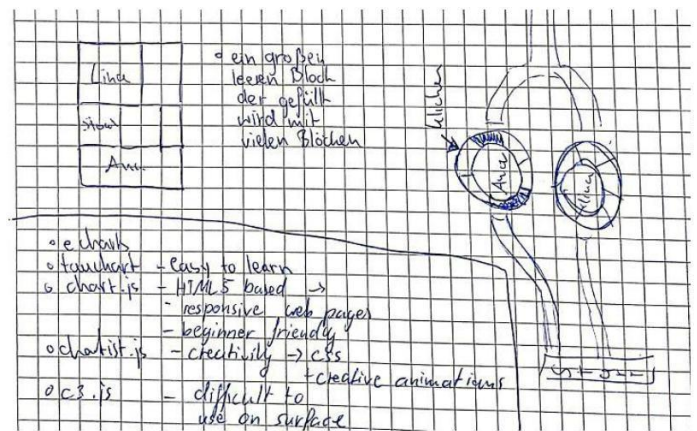 Lina
• ein großen
leeren Block
der gefüllt
wird mit
vielen Blöchen
Ana
• echarts
• tauchart - easy to learn
• chart.js - HTML5 based →
- responsive web pages
- beginner friendly
• chartist.js - creativity → css
+ creative animations
• c3.js - difficult to
use on surface